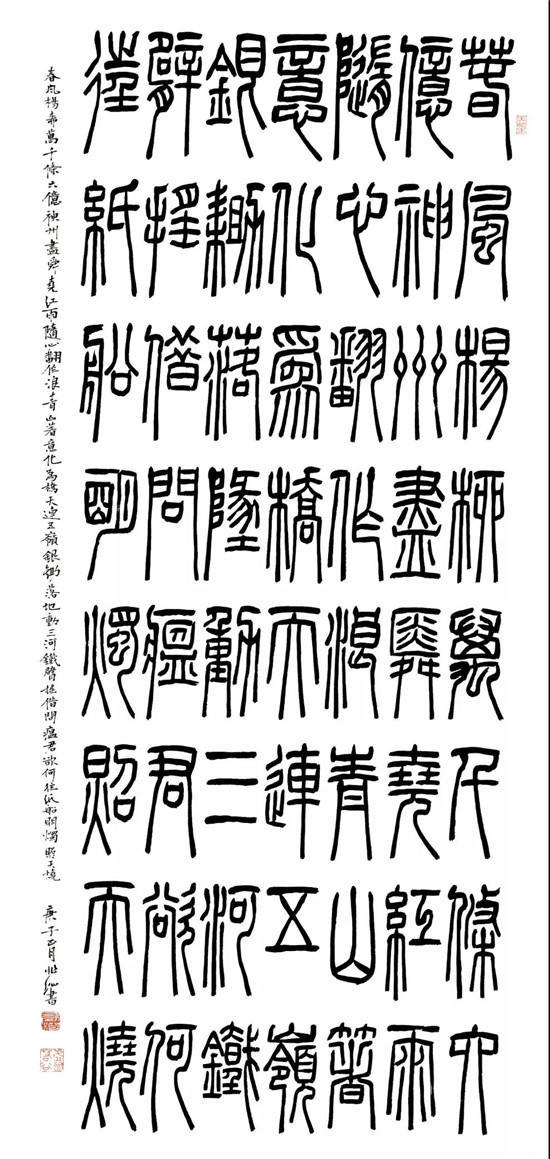 春風楊柳萬千條六
億神州盡舜堯紅雨
隨心翻作浪青山著
意化爲橋天連五嶺
銀鋤落地動三河鐵
臂搖借問瘟君欲何
往紙船明燭照天燒
春風楊柳萬千條六億神州盡舜堯紅雨隨心翻作浪青山著意化爲橋天連五嶺銀鋤落地動三河鐵臂搖借問瘟君欲何往紙船明燭照天燒 庚子正月 書